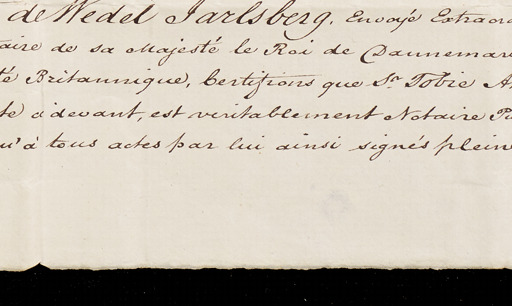 de Wedel Jarlsberg, Envoyé Extraord
taire de sa Majesté le Roi de Dannemar
té Britannique, Certifions que Sr. Tobie A
te ci devant, est veritablement Notaire Pu
qu'à tous actes par lui ainsi signés plein